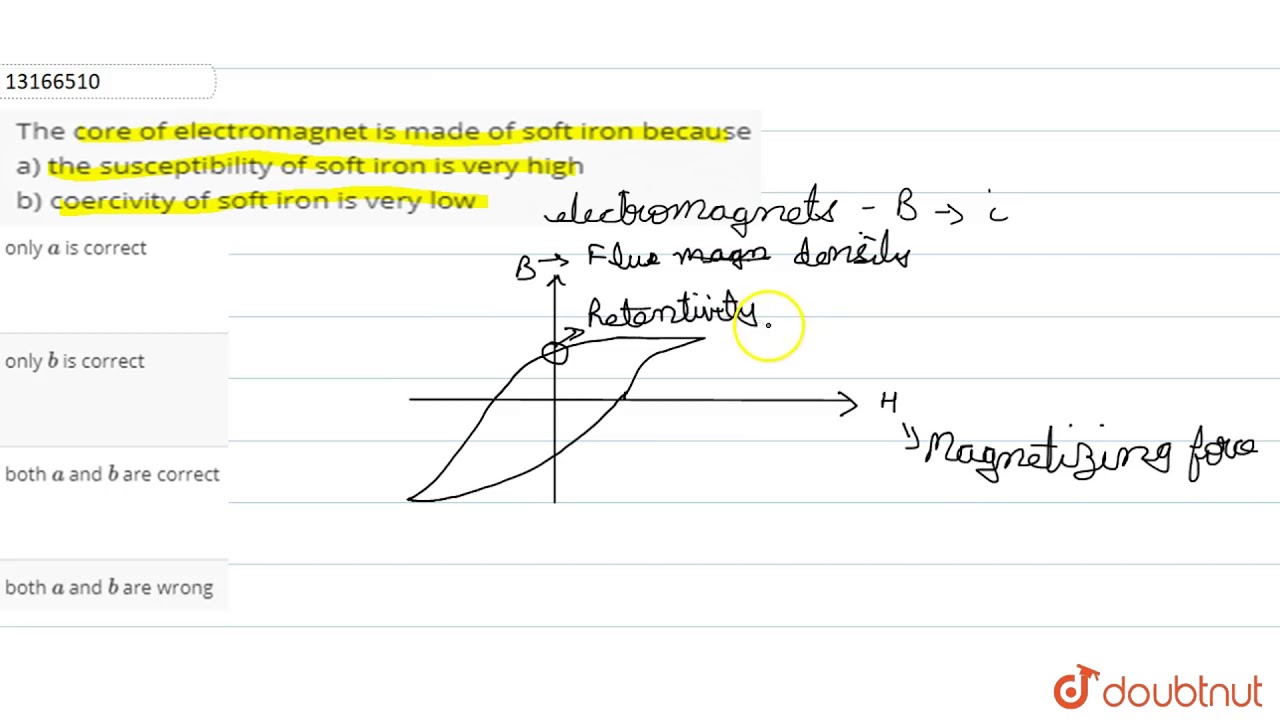 13166510
The core of electromagnet is made of soft iron because
a) the susceptibility of soft iron is very high
b) coercivity of soft iron is very low
electromagnets - B → i
B → Flue magn density
Retentivity.
H
Magnetizing force
only a is correct
only b is correct
both a and b are correct
both a and b are wrong
doubtnut